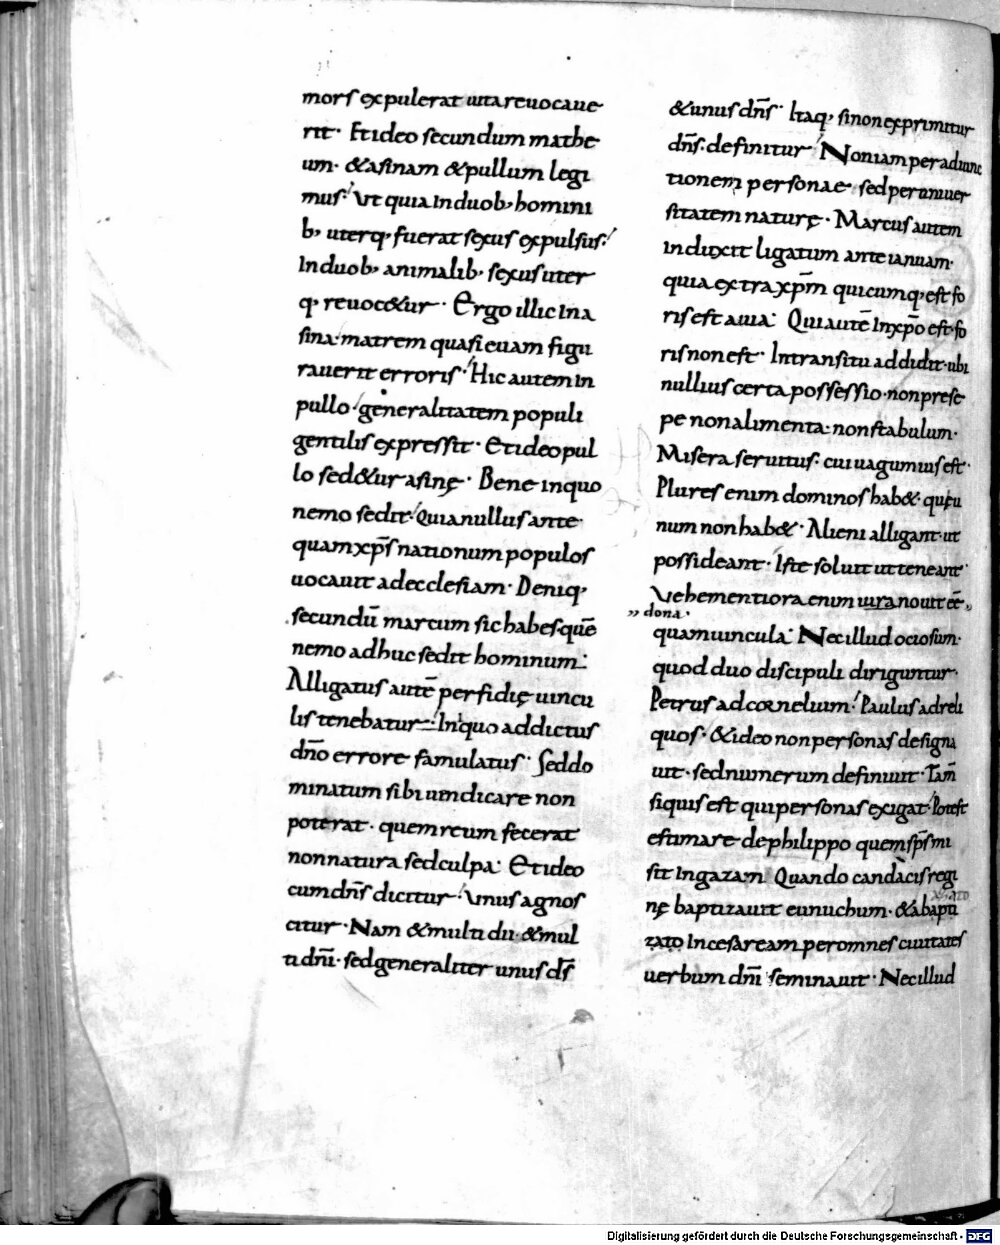 mors expulerat uita reuocaue
rit· Et ideo secundum mathe
um· & asinam & pullum legi
mus· Ut quia In duob; homini
b; uterq; fuerat sexus expulsus·
In duob; animalib; sexus uter
q; reuoc&ur· Ergo illic In a
sina matrem quasi euam figu
rauerit erroris· Hic autem in
pullo· generalitatem populi
gentilis expressit· Et ideo pul
lo sed&ur asinę· Bene in quo
nemo sedit· Quia nullus ante
quam xp̄s nationum populos
uocauit ad ecclesiam· Deniq;
secundū marcum sic habes· quē
nemo adhuc sedit hominum·
Alligatus autē perfidię uincu
lis tenebatur· In quo addictus
dn̄o errore famulatus· Sed do
minatum sibi uindicare non
poterat· quem reum fecerat
non natura sed culpa· Et ideo
cum dn̄s dicitur· Unus agnos
citur· Nam & multi dii· & mul
ti dn̄i· sed generaliter unus ds̄
& unus dn̄s· Itaq; si non exprimitur
dn̄s· definitur· Non iam per adiunc
tionem personae· sed per uniuer
sitatem naturę· Marcus autem
induxit ligatum ante ianuam·
quia extra xp̄m quicumq; est fo
ris est a uia· Qui autē In xp̄o est· fo
ris non est· In transitu addidit· ubi
nullius certa possessio· non prese
pe non alimenta· non stabulum·
Misera seruitus· cui uagum ius est·
Plures enim dominos hab&· qui u
num non hab&· Alieni alligant· ut
possideant· Iste soluit ut teneant·
Vehementiora enim iura nouit eē„
„dona·
quam uincula· Nec illud ociosum·
quod duo discipuli diriguntur·
Petrus ad cornelium· Paulus ad reli
quos· & ideo non personas designa
uit· sed numerum definiuit· Tam̄
si quis est qui personas exigat· Potest
estimare de philippo quem sp̄s mi
sit In gazam Quando candacis regi
nę baptizauit eunuchum· & a bapti
zato In cesaream per omnes ciuitates
uerbum dn̄i seminauit· Nec illud
Digitalisierung gefördert durch die Deutsche Forschungsgemeinschaft - DFG